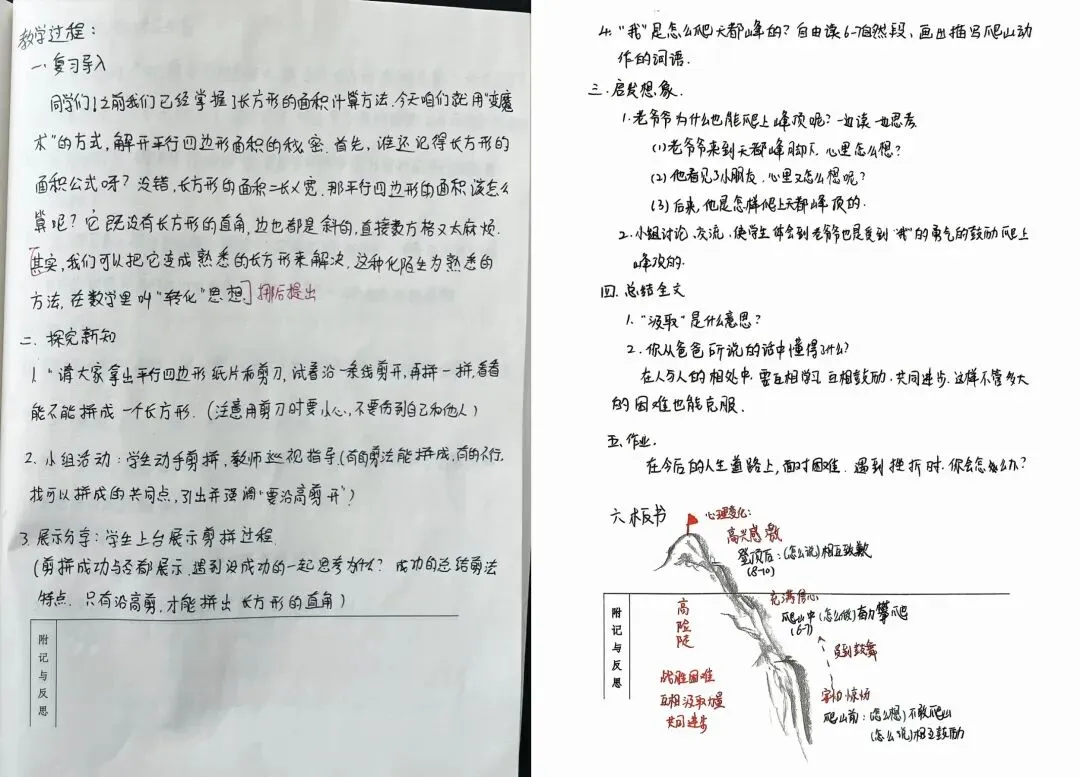 教学过程：
一、复习导入
同学们！之前我们已经掌握了长方形的面积计算方法.今天咱们就用“变魔
术”的方式，解开平行四边形面积的秘密.首先，谁还记得长方形的
面积公式呀？没错，长方形的面积=长×宽.那平行四边形的面积该怎么
算呢？它既没有长方形的直角，边也都是斜的，直接数方格又太麻烦.
[其实，我们可以把它变成熟悉的长方形来解决，这种化陌生为熟悉的
方法，在数学里叫“转化”思想] 挪后提出
二、探究新知
1. “请大家拿出平行四边形纸片和剪刀，试着沿一条线剪开，再拼一拼，看看
能不能拼成一个长方形.（注意用剪刀时要小心，不要伤到自己和他人）
2. 小组活动：学生动手剪拼，教师巡视指导（有的剪法能拼成，有的不行，
找可以拼成的共同点，引出并强调“要沿高剪开”）
3 展示分享：学生上台展示剪拼过程
（剪拼成功与否都展示.遇到没成功的一起思考为什么？成功的总结剪法
特点.只有沿高剪，才能拼出长方形的直角）
附记与反思
4. “我”是怎么爬天都峰的？自由读6-7自然段，画出描写爬山动
作的词语.
三.启发想象.
1.老爷爷为什么也能爬上峰顶呢？边读边思考
(1)老爷爷来到天都峰脚下，心里怎么想？
(2)他看见了小朋友.心里又怎么想呢？
(3)后来，他是怎样爬上天都峰顶的.
2.小组讨论、交流，使学生体会到老爷爷也是受到“我”的勇气的鼓励爬上
峰顶的.
四.总结全文
1.“汲取”是什么意思？
2.你从爸爸所说的话中懂得了什么？
在人与人的相处中.要互相学习 互相鼓励.共同进步.这样不管多大
的困难也能克服.
五.作业.
在今后的人生道路上，面对困难.遇到挫折时.你会怎么办？
六板书
心理变化：
高兴感激
登顶后：(怎么说)相互致歉
(8-10)
充满信心
爬山中(怎么做)奋力攀爬
(6-7)
受到鼓舞
高险陡
战胜困难
互相汲取力量
共同进步
爬山前：(怎么想)不敢爬山
(怎么说)相互鼓励
附记与反思